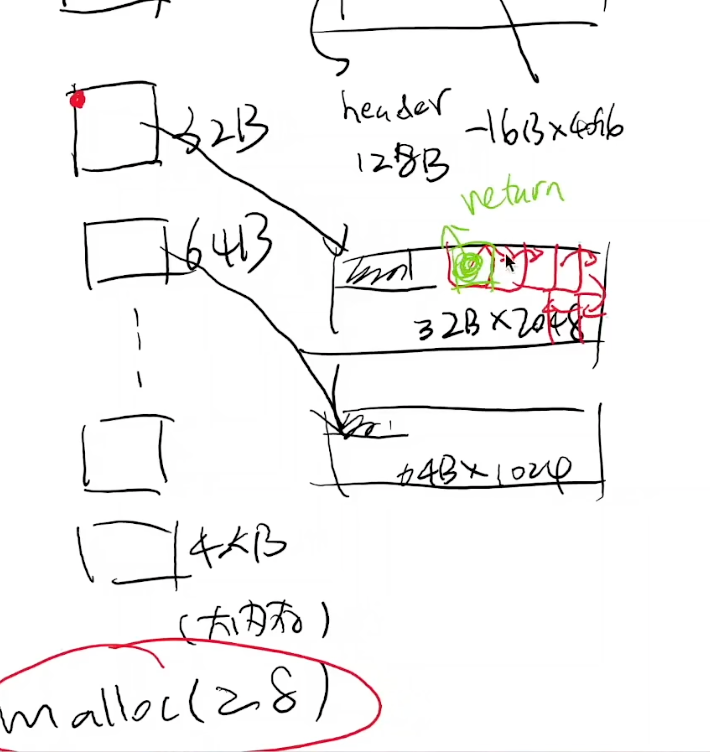 32B
header
128B
-16B×4096
return
64B
32B×2048
64B×1024
4KB
(大内存)
malloc(28)